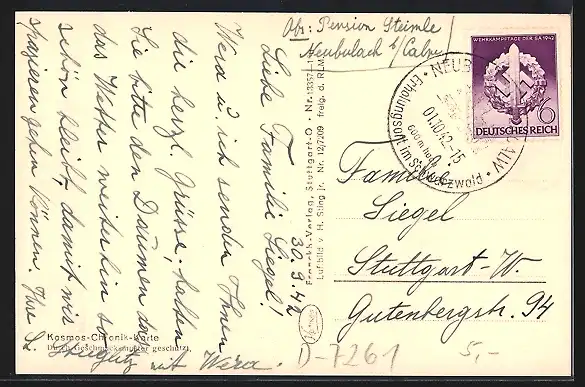 Abs: Pension Steimle
Neubulach b/Calw
30.9.42
Liebe Familie Siegel!
Wera u. ich senden Ihnen
die herzl. Grüsse, halten
Sie bitte den Daumen dass
das Wetter weiterhin so
schön bleibt, damit wir
spazierengehen können. Ihre
mit Wera.
WEHRKAMPFTAGE DER SA 1942
6
DEUTSCHES REICH
NEUB
Erholungsort im Schwarzwald
01.10.42-15
600 m hoch
Familie
Siegel
Stuttgart-W.
Gutenbergstr. 94
Franckh-Verlag, Stuttgart-O
Luftbild v. H. Sting jr. Nr. 12/7209 freig. d. RLM
Kosmos-Chronik-Karte
Durch Geschmacksmuster geschützt.
D-7261
5,-